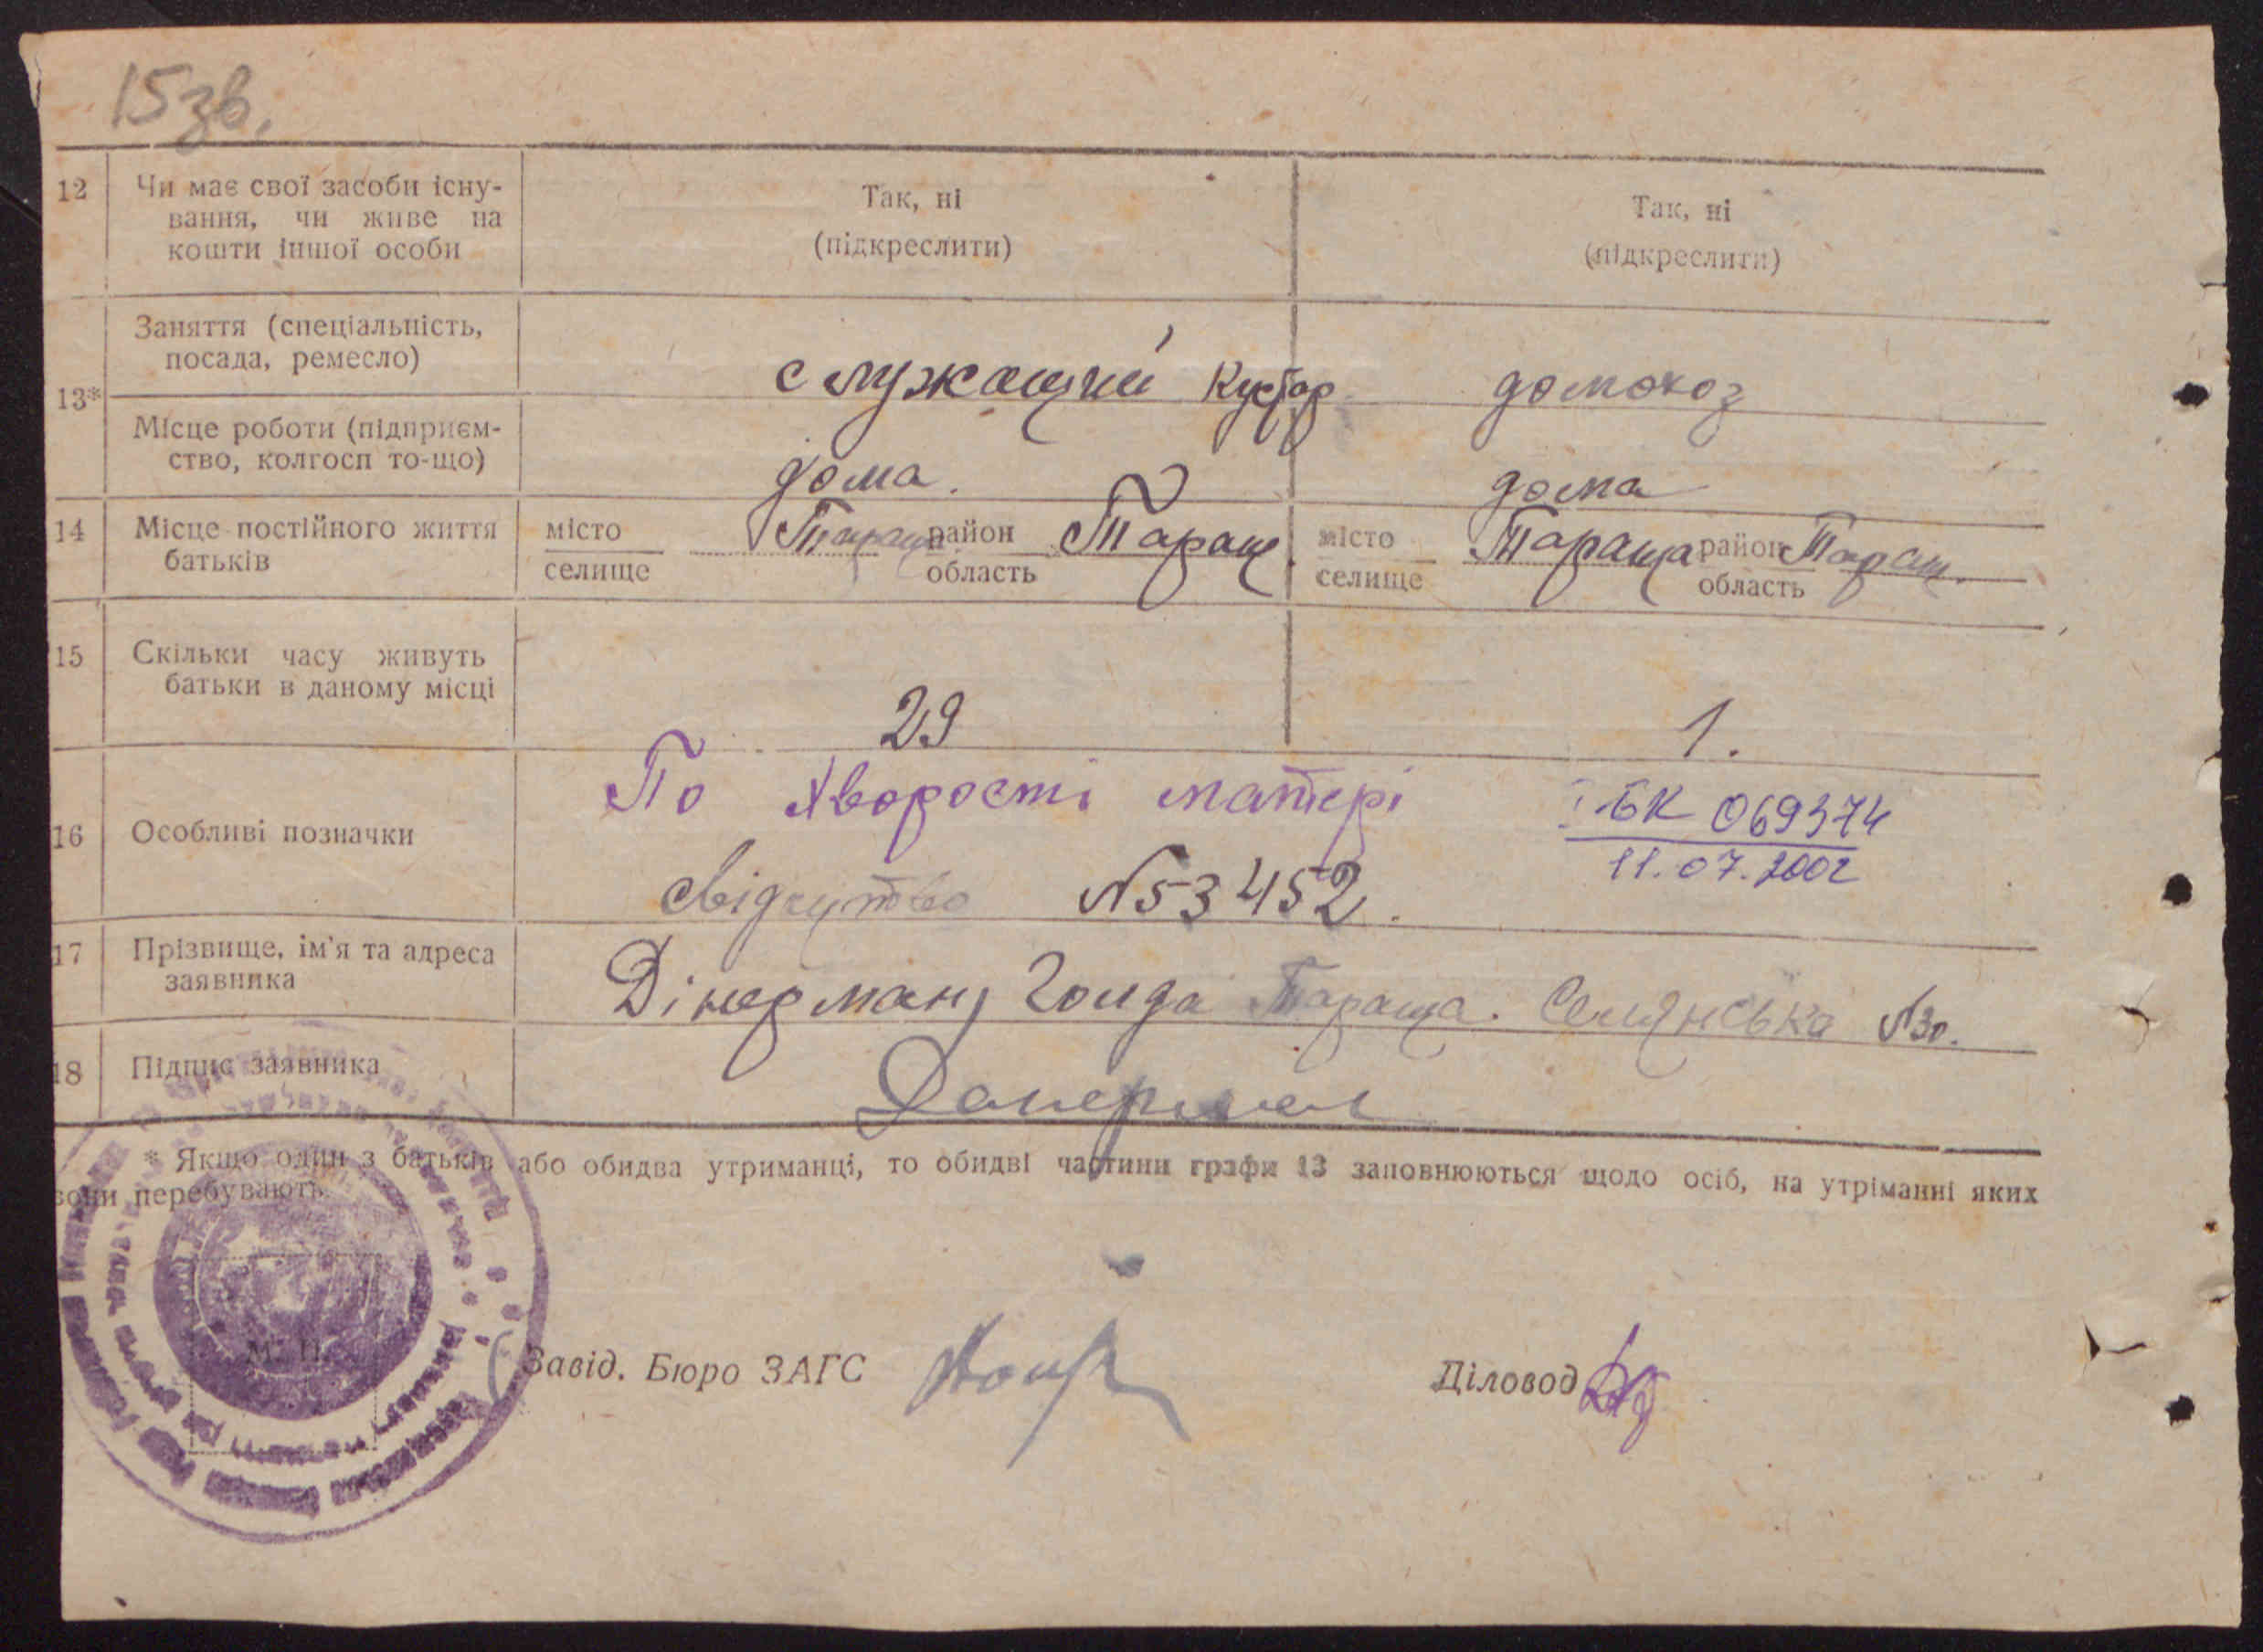 15зв.
12 Чи має свої засоби існу-
вання, чи живе на
кошти іншої особи
Так, ні
(підкреслити)
Так, ні
(підкреслити)
13*
Заняття (спеціальність,
посада, ремесло)
служащий кустар
домохоз
Місце роботи (підприєм-
ство, колгосп то-що)
дома.
дома
14 Місце постійного життя
батьків
місто
селище
Тараща
район
область
Таращ.
місто
селище
Тараща
район
область
Таращ.
15 Скільки часу живуть
батьки в даному місці
29
1.
16 Особливі позначки
По хворості матері
свідоцтво №53452.
І-БК 069374
11.07.2002
17 Прізвище, ім'я та адреса
заявника
Дінерман, Голда Тараща. №30.
18 Підпис заявника
* Якщо один з батьків або обидва утриманці, то обидві частини графи 13 заповнюються щодо осіб, на утріманні яких
вони перебувають.
М. П.
Завід. Бюро ЗАГС
Діловод